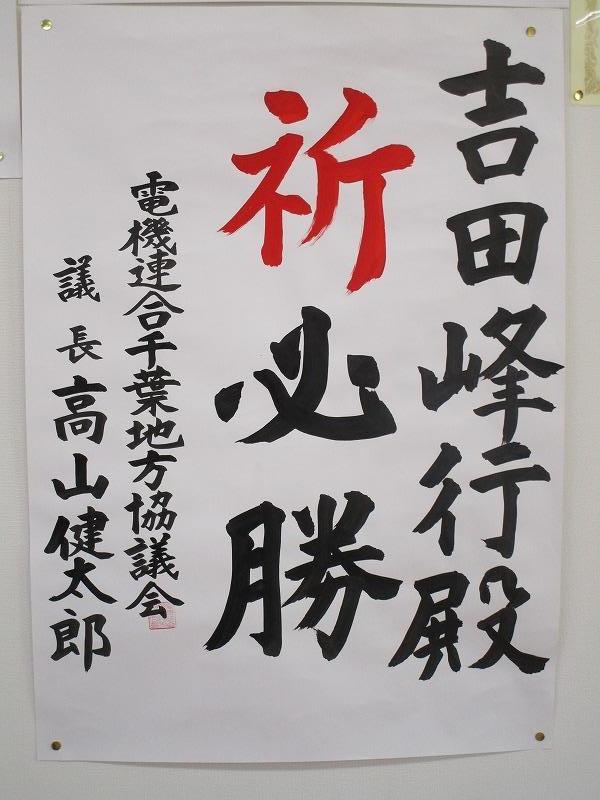 吉田峰行殿
祈必勝
電機連合千葉地方協議会
議長高山健太郎